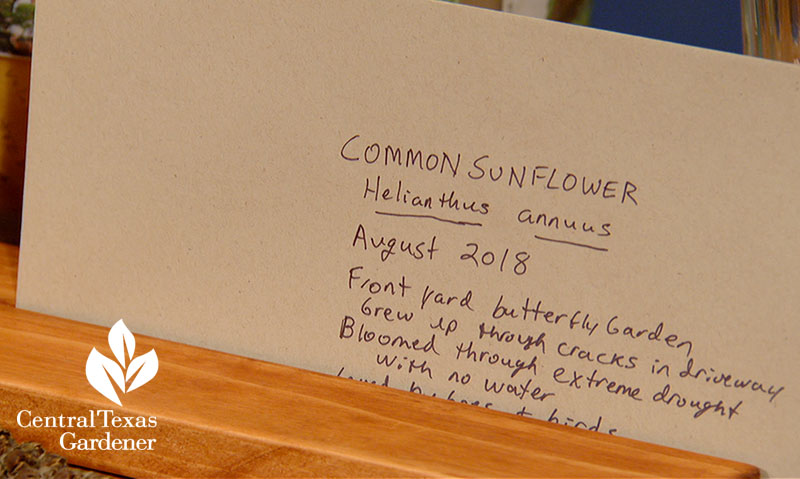 COMMON SUNFLOWER
Helianthus annuus
August 2018
Front yard butterfly Garden
Grew up through cracks in driveway
Bloomed through extreme drought
with no water
Loved by bees + birds
Central Texas
Gardener